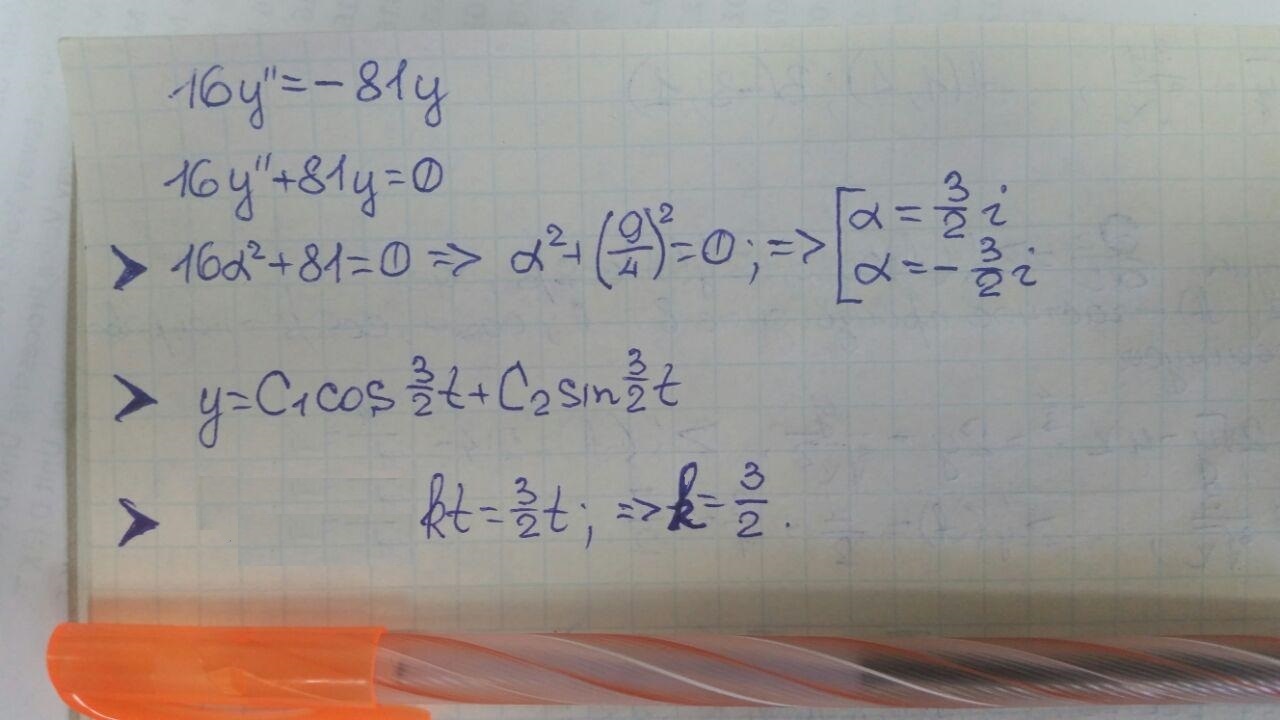 16y'' = -81y
16y'' + 81y = 0
> 16α² + 81 = 0 => α² + (9/4)² = 0; => [ α = 3/2 i
α = - 3/2 i
> y = C₁cos 3/2 t + C₂ sin 3/2 t
> kt = 3/2 t; => k = 3/2.